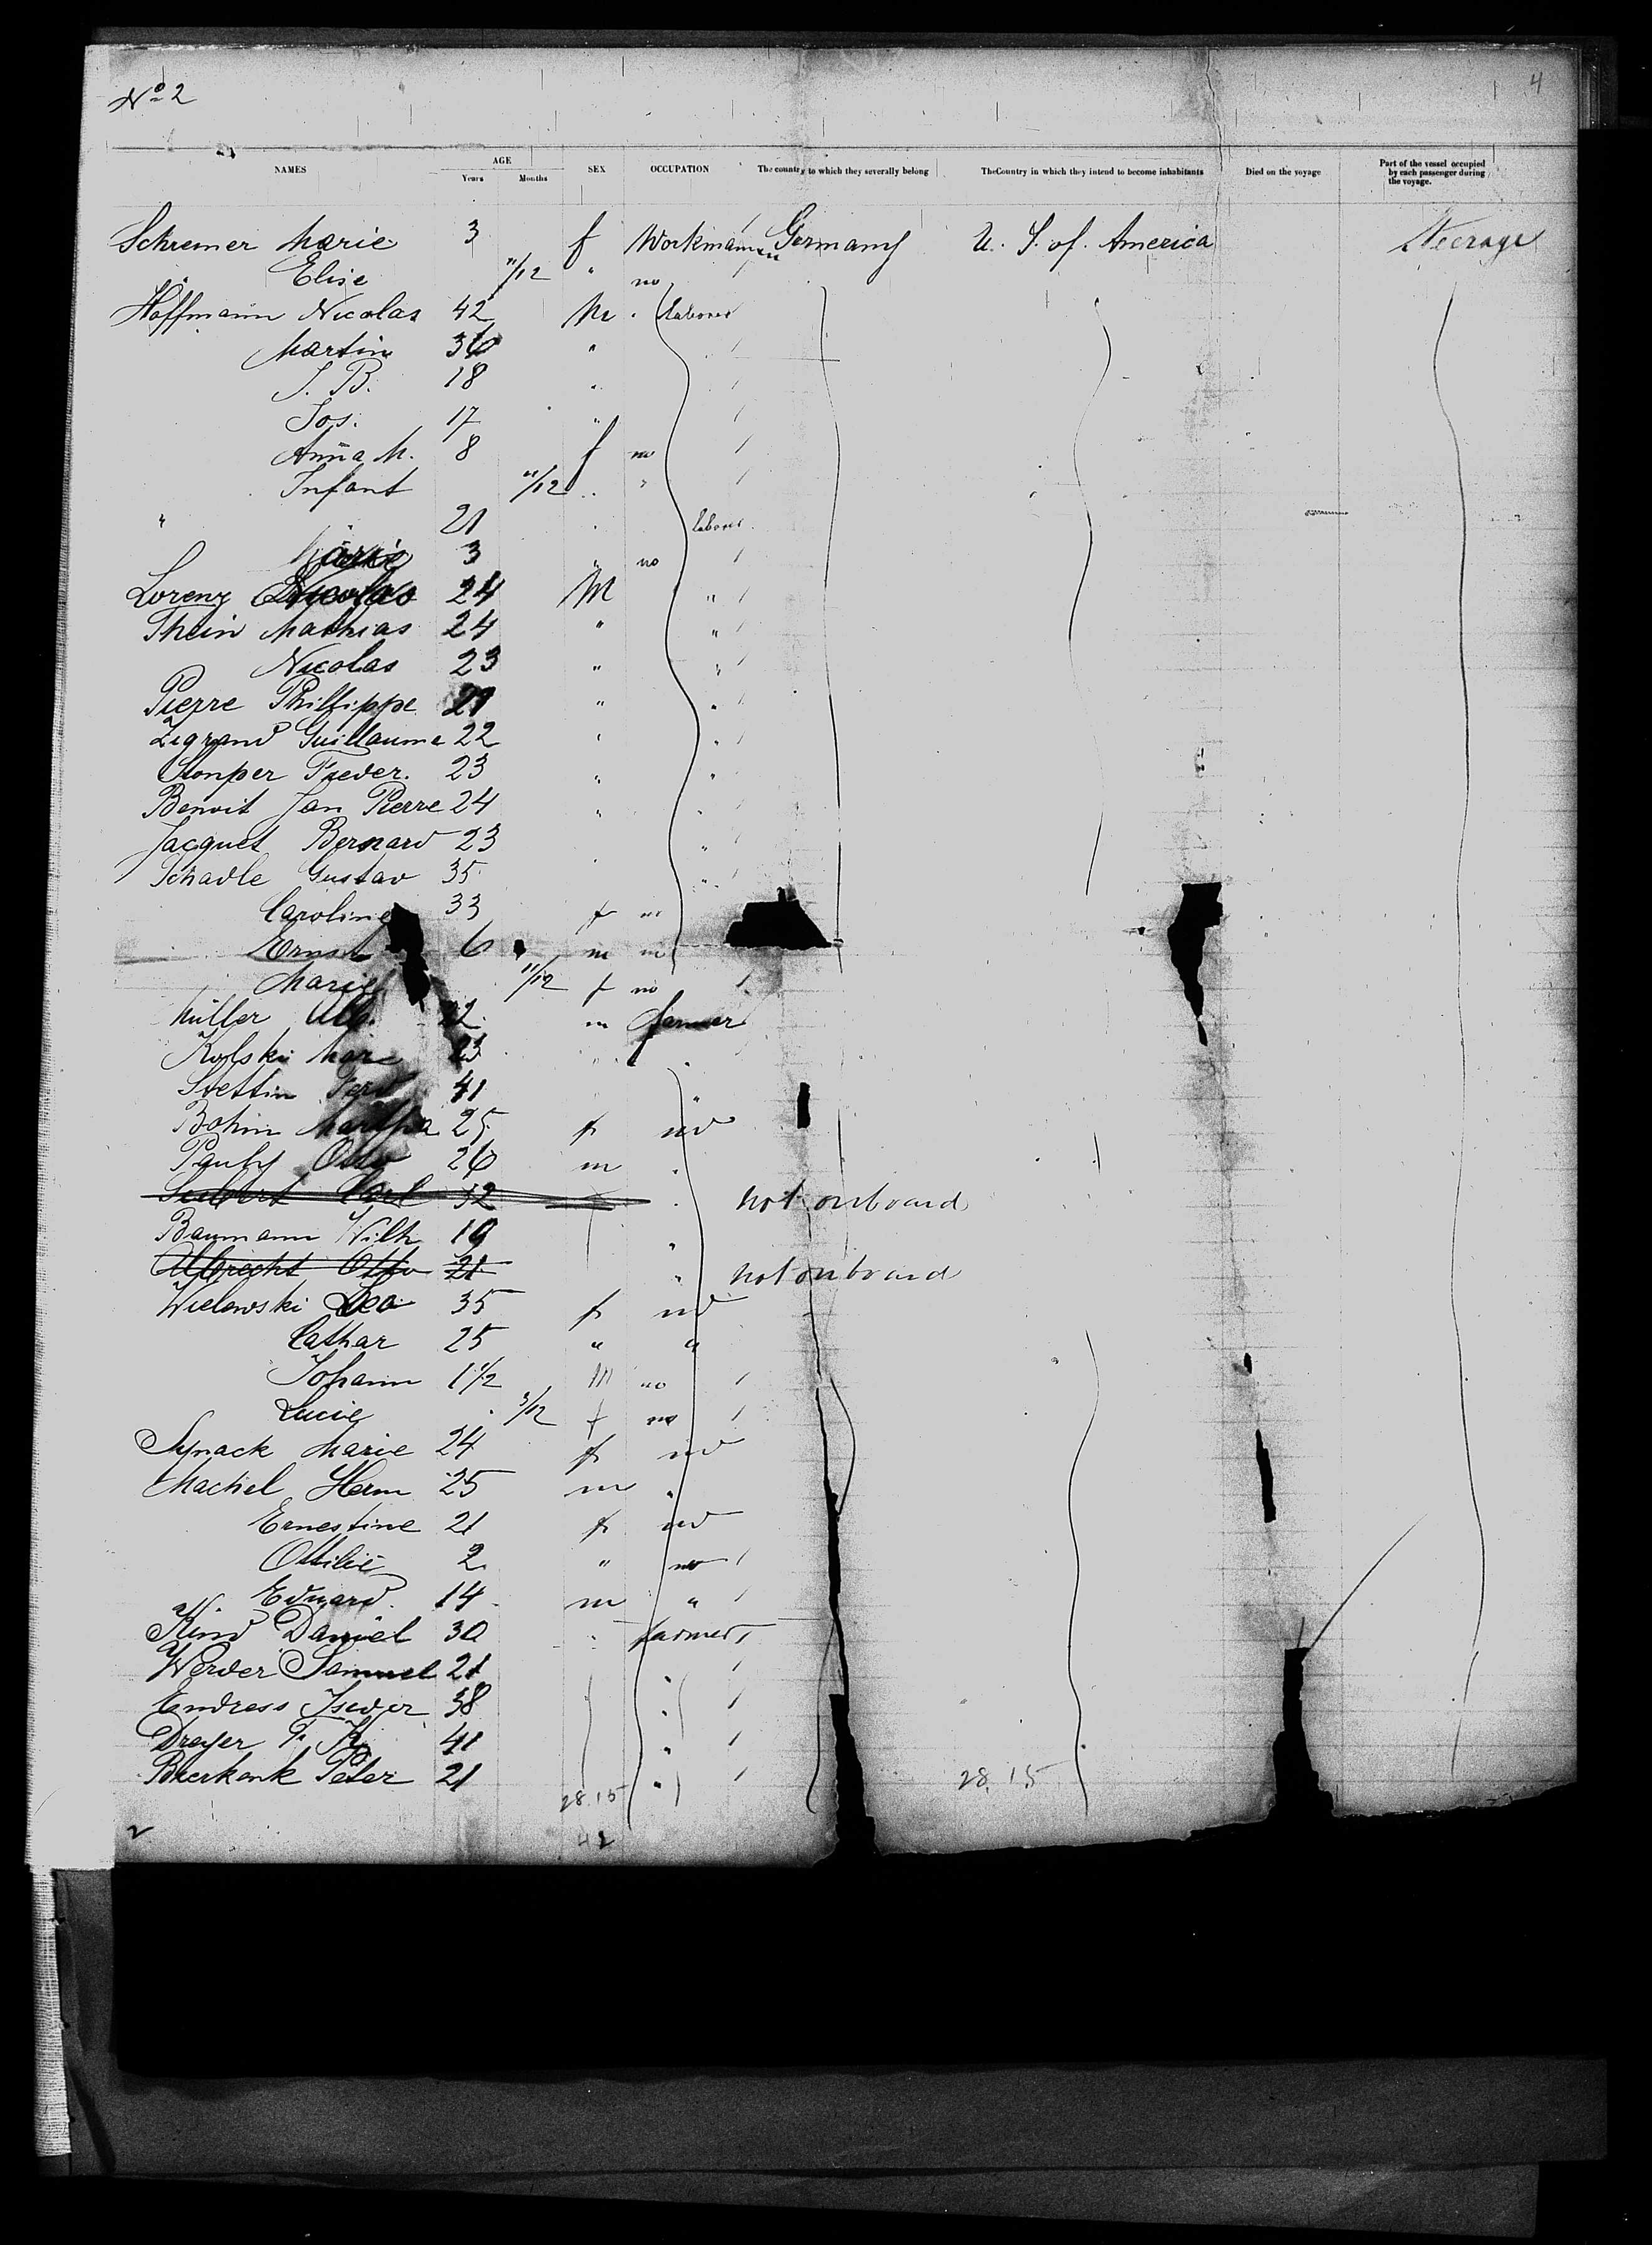 No 2
4
NAMES AGE Years Months SEX OCCUPATION The country to which they severally belong The Country in which they intend to become inhabitants Died on the voyage Part of the vessel occupied by each passenger during the voyage.
Schremer Marie 3 f Workman Germany U. S. of. America Steerage
" Elise 11/12 " no
Hoffmann Nicolas 42 M laborer
Martin 36 "
J. B. 18 "
Jos. 17 "
Anna M. 8 f no
Infant 11/12 " "
" 21 " laborer
Marie 3 " no
Lorenz Nicolas 24 M "
Thein Mathias 24 " "
Nicolas 23 " "
Pierre Philippe 21 " "
Zigrand Guillaume 22 " "
Feder. 23 " "
Benoit Jan Pierre 24 " "
Jacquet Bernard 23 " "
Schadle Gustav 35 "
Caroline 33 f no
Ernst 6 m no
Marie 11/12 f no
Müller 22 m farmer
Kolski 23 "
Stettin Ferd 41 "
Bohm Martha 25 f
Pauly Otto 26 m "
Seibert Carl 32 " not onboard
Baumann Wilh 19 "
Albrecht Otto 21 " not onboard
Wielewski Leo 35 f
Cathar 25 " "
Johann 1 1/2 m no
Lucie 3/12 f no
Synack Marie 24 f
Machel Herm 25 m "
Ernestine 21 f
Ottilie 2 " no
Eduard 14 m "
Kind Daniel 30 " farmer
Werder Samuel 21 "
Endress Isidor 38 "
Dreyer F. 41 "
Peter 21 "
28 15 28. 15
2 42